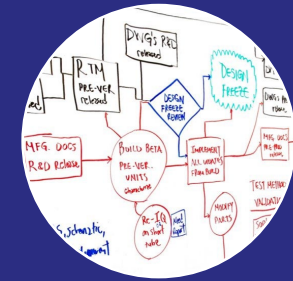 DWG's R&D
released
RTM
PRE-VER
released
DESIGN
FREEZE
REVIEW
DESIGN
FREEZE
MFG. DOCS
R&D Release
BUILD BETA
PRE-VER
UNITS
IMPLEMENT
ALL UPDATES
FROM BUILD
DWG's PRE
MFG DOCS
TEST METHOD
VALIDATION
MODIFY
PARTS
Re-IQ
on short
tube
Need
Report
S, schematic,